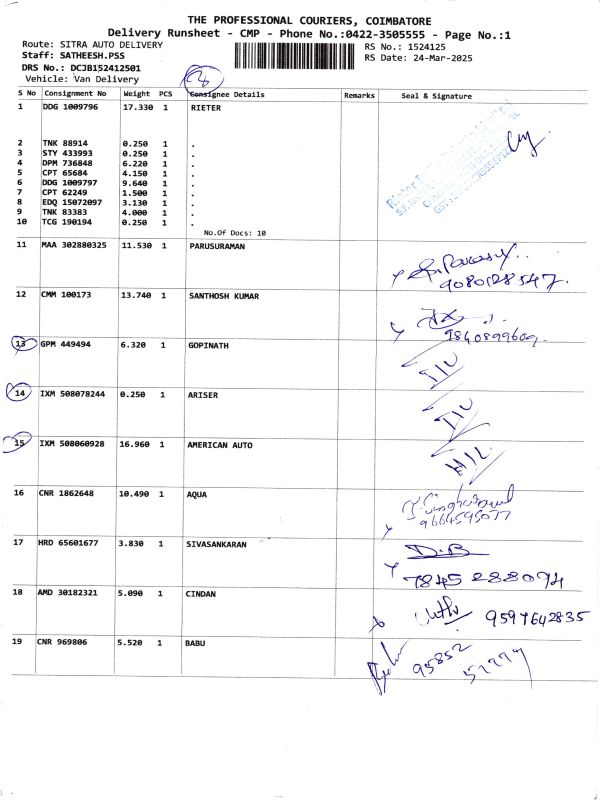 THE PROFESSIONAL COURIERS, COIMBATORE
Delivery Runsheet - CMP - Phone No.:0422-3505555 - Page No.:1
Route: SITRA AUTO DELIVERY
RS No.: 1524125
Staff: SATHEESH.PSS
RS Date: 24-Mar-2025
DRS No.: DCJB152412501
Vehicle: Van Delivery
S No Consignment No Weight PCS Consignee Details Remarks Seal & Signature
1 DDG 1009796 17.330 1 RIETER
2 TNK 88914 0.250 1 .
3 STY 433993 0.250 1 .
4 DPM 736848 6.220 1 .
5 CPT 65684 4.150 1 .
6 DDG 1009797 9.640 1 .
7 CPT 62249 1.500 1 .
8 EDQ 15072097 3.130 1 .
9 TNK 83383 4.000 1 .
10 TCG 190194 0.250 1 .
No.Of Docs: 10
11 MAA 302880325 11.530 1 PARUSURAMAN
9080128547
12 CMM 100173 13.740 1 SANTHOSH KUMAR
9840899609
13 GPM 449494 6.320 1 GOPINATH
14 IXM 508078244 0.250 1 ARISER
15 IXM 508060928 16.960 1 AMERICAN AUTO
16 CNR 1862648 10.490 1 AQUA
9664595077
17 HRD 65601677 3.830 1 SIVASANKARAN
D.B
7845 288094
18 AMD 30182321 5.090 1 CINDAN
9597642835
19 CNR 969806 5.520 1 BABU
95852